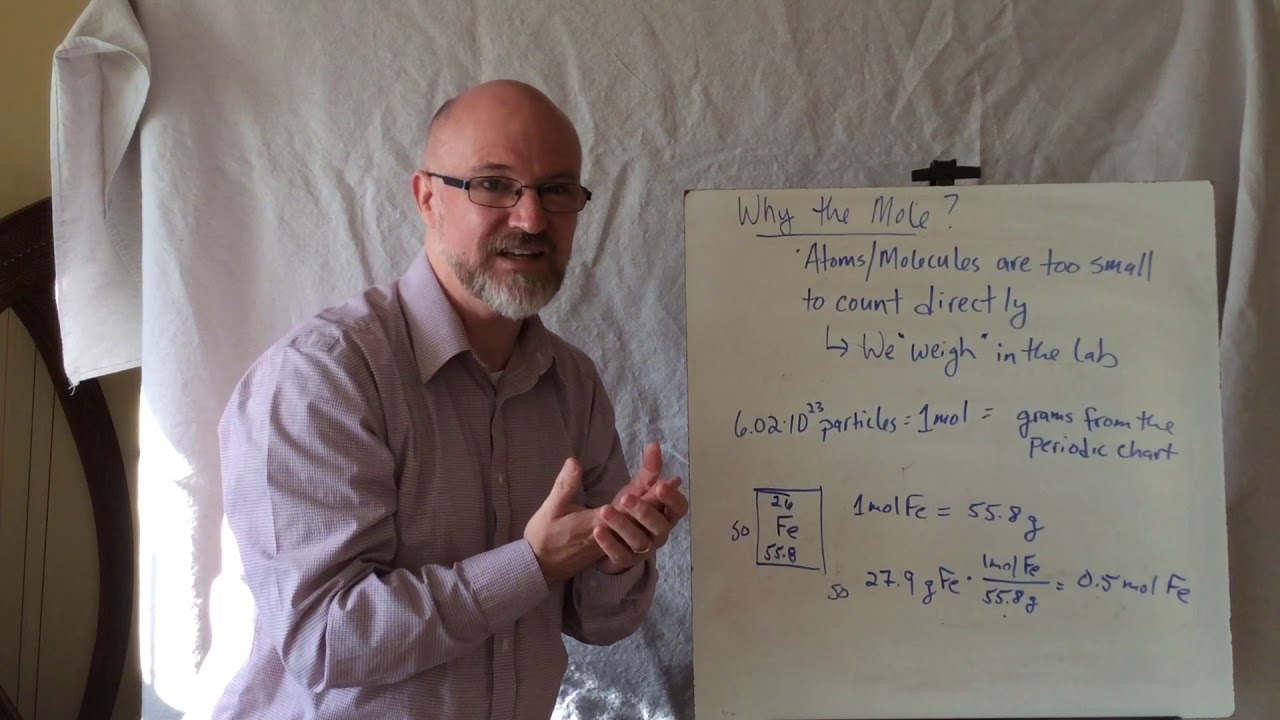 Why the Mole?
·Atoms/Molecules are too small
to count directly
↳ We "weigh" in the lab
6.02·10²³ particles = 1mol = grams from the
periodic chart
26
so Fe
55.8
1mol Fe = 55.8g
so 27.9 g Fe · 1mol Fe/55.8g = 0.5 mol Fe